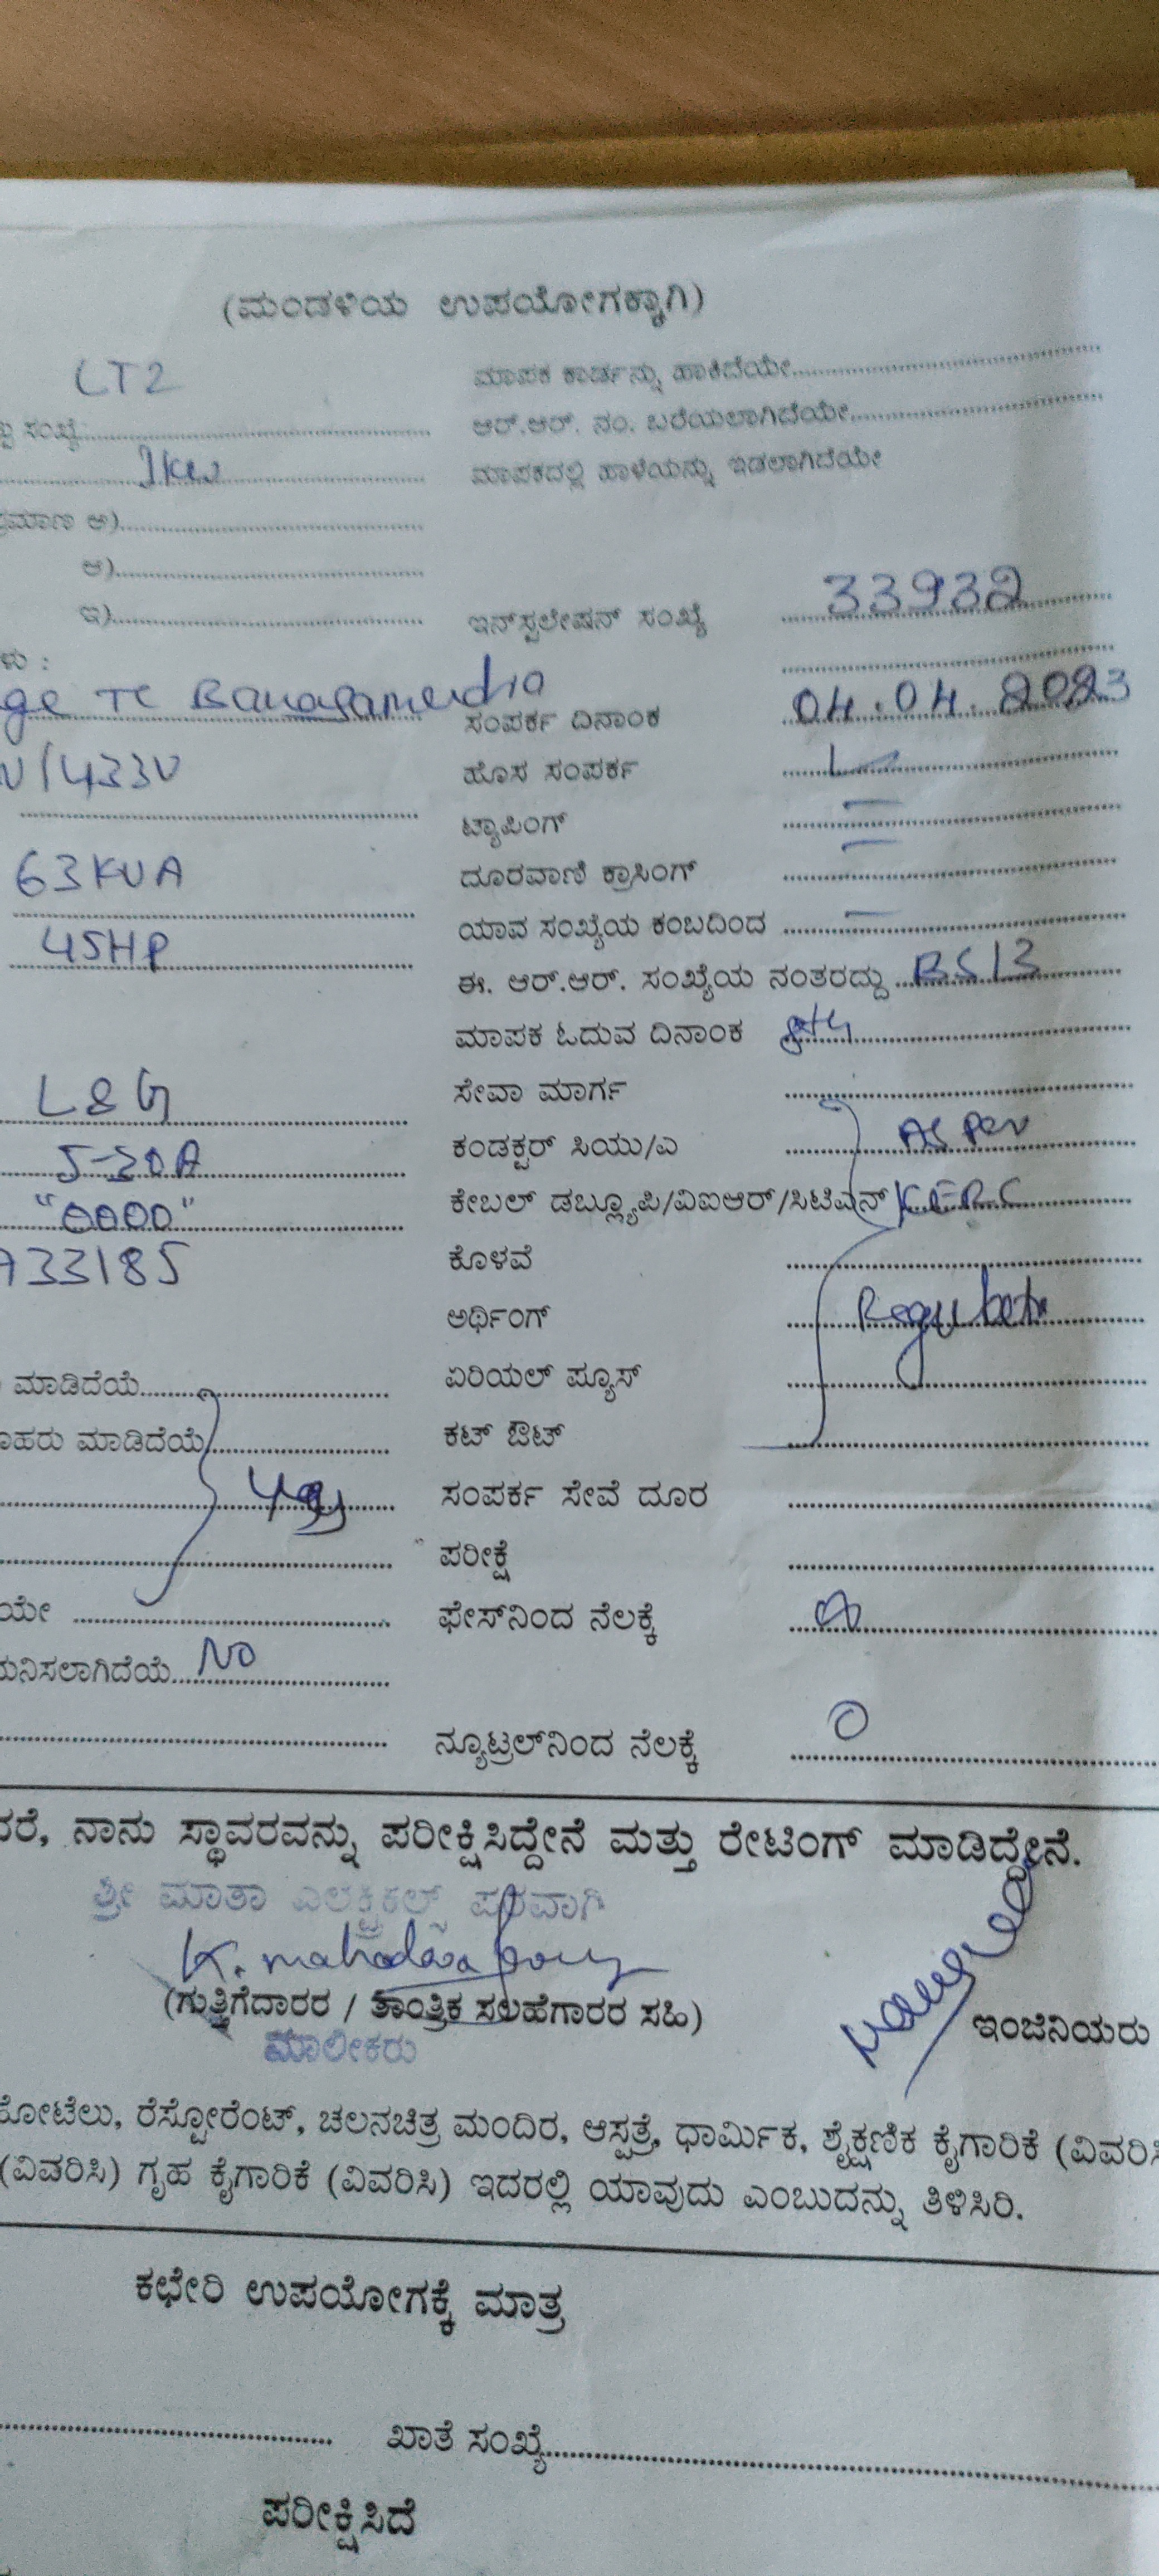 (ಮಂಡಳಿಯ ಉಪಯೋಗಕ್ಕಾಗಿ)
LT2 ಮಾಪಕ ಕಾರ್ಡನ್ನು ಹಾಕಿದೆಯೇ
ಸಂಖ್ಯೆ ಆರ್.ಆರ್. ನಂ. ಬರೆಯಲಾಗಿದೆಯೇ
1kw ಮಾಪಕದಲ್ಲಿ ಹಾಳೆಯನ್ನು ಇಡಲಾಗಿದೆಯೇ
ಪ್ರಮಾಣ ಅ)
ಆ)
ಇ) ಇನ್‌ಸ್ಟಲೇಷನ್ ಸಂಖ್ಯೆ 33932
ಳು :
ge TC ಸಂಪರ್ಕ ದಿನಾಂಕ 04.04.2023
V/433V ಹೊಸ ಸಂಪರ್ಕ
ಟ್ಯಾಪಿಂಗ್ –
63KVA ದೂರವಾಣಿ ಕ್ರಾಸಿಂಗ್ –
ಯಾವ ಸಂಖ್ಯೆಯ ಕಂಬದಿಂದ –
45HP ಈ. ಆರ್.ಆರ್. ಸಂಖ್ಯೆಯ ನಂತರದ್ದು BS13
ಮಾಪಕ ಓದುವ ದಿನಾಂಕ
L&G ಸೇವಾ ಮಾರ್ಗ
5-20A ಕಂಡಕ್ಟರ್ ಸಿಯು/ಎ AS per
"0000" ಕೇಬಲ್ ಡಬ್ಲ್ಯೂಪಿ/ವಿಐಆರ್/ಸಿಟಿಎನ್ KERC
733185 ಕೊಳವೆ
ಅರ್ಥಿಂಗ್
ಮಾಡಿದೆಯೆ ಏರಿಯಲ್ ಪ್ಯೂಸ್
ಾಹರು ಮಾಡಿದೆಯೆ ಕಟ್ ಔಟ್
Yes ಸಂಪರ್ಕ ಸೇವೆ ದೂರ
ಪರೀಕ್ಷೆ
ಯೇ ಫೇಸ್‌ನಿಂದ ನೆಲಕ್ಕೆ
ಮನಿಸಲಾಗಿದೆಯೆ NO
ನ್ಯೂಟ್ರಲ್‌ನಿಂದ ನೆಲಕ್ಕೆ 0
ದರೆ, ನಾನು ಸ್ಥಾವರವನ್ನು ಪರೀಕ್ಷಿಸಿದ್ದೇನೆ ಮತ್ತು ರೇಟಿಂಗ್ ಮಾಡಿದ್ದೇನೆ.
ಶ್ರೀ ಮಾತಾ ಎಲೆಕ್ಟ್ರಿಕಲ್ಸ್ ಪರವಾಗಿ
(ಗುತ್ತಿಗೆದಾರರ / ತಾಂತ್ರಿಕ ಸಲಹೆಗಾರರ ಸಹಿ) ಇಂಜಿನಿಯರು
ಮಾಲೀಕರು
ಹೋಟೆಲು, ರೆಸ್ಟೋರೆಂಟ್, ಚಲನಚಿತ್ರ ಮಂದಿರ, ಆಸ್ಪತ್ರೆ, ಧಾರ್ಮಿಕ, ಶೈಕ್ಷಣಿಕ ಕೈಗಾರಿಕೆ (ವಿವರಿಸಿ
(ವಿವರಿಸಿ) ಗೃಹ ಕೈಗಾರಿಕೆ (ವಿವರಿಸಿ) ಇದರಲ್ಲಿ ಯಾವುದು ಎಂಬುದನ್ನು ತಿಳಿಸಿರಿ.
ಕಛೇರಿ ಉಪಯೋಗಕ್ಕೆ ಮಾತ್ರ
ಖಾತೆ ಸಂಖ್ಯೆ
ಪರೀಕ್ಷಿಸಿದೆ